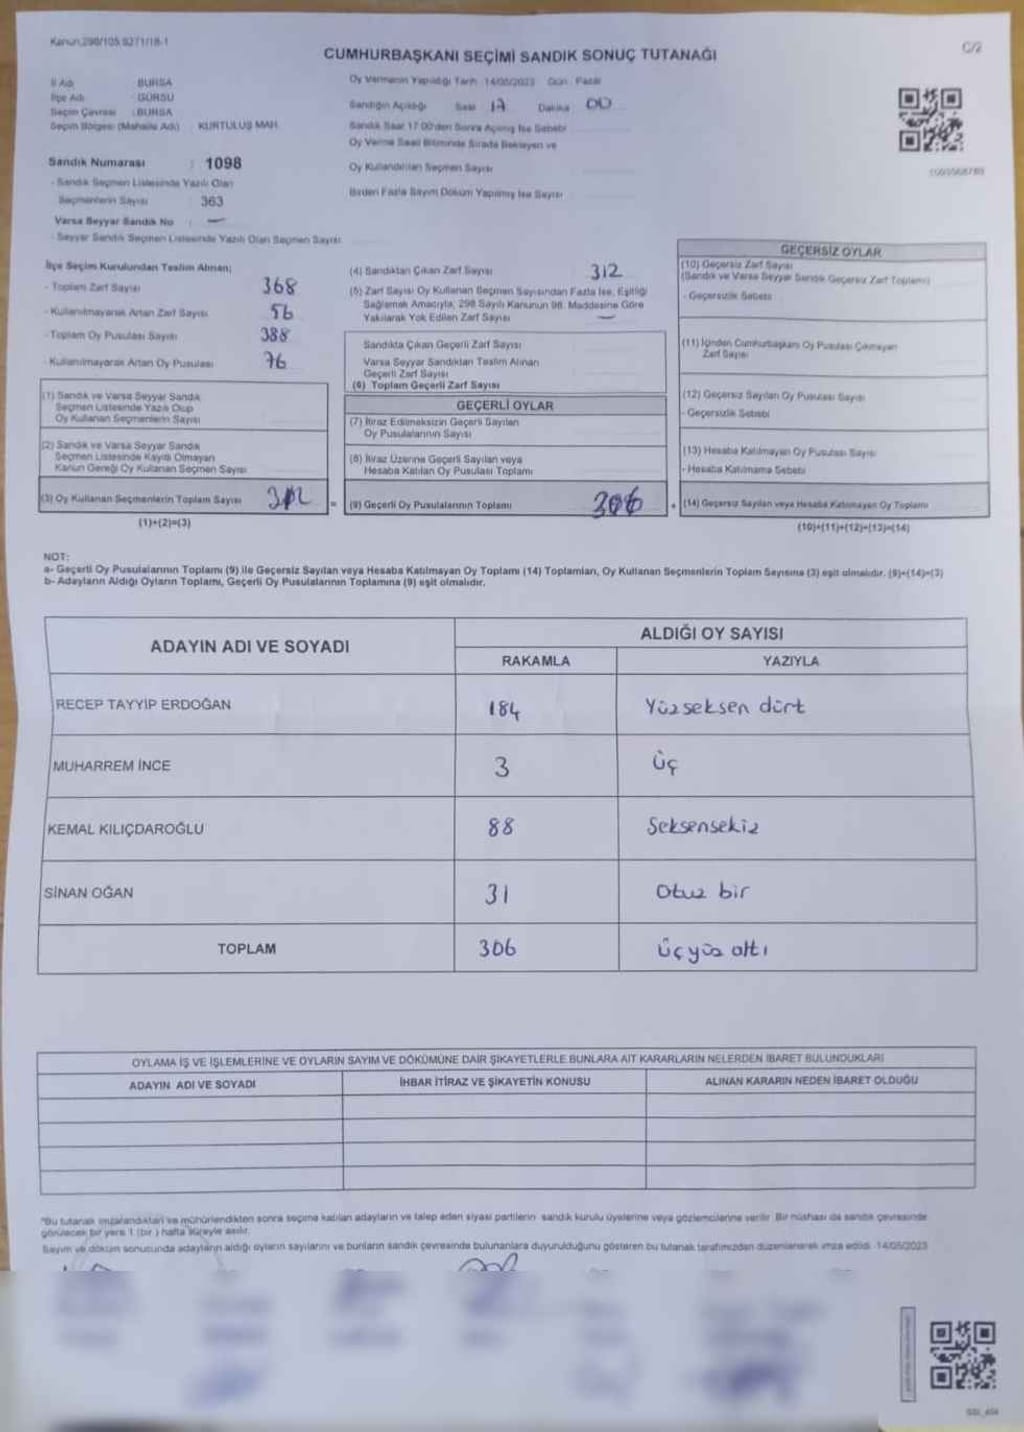 Kanun:298/105 8271/18-1
C/2
CUMHURBAŞKANI SEÇİMİ SANDIK SONUÇ TUTANAĞI
İl Adı : BURSA
İlçe Adı : GÜRSU
Seçim Çevresi : BURSA
Seçim Bölgesi (Mahalle Adı) : KURTULUŞ MAH.
Sandık Numarası : 1098
- Sandık Seçmen Listesinde Yazılı Olan
Seçmenlerin Sayısı : 363
Varsa Seyyar Sandık No : —
- Seyyar Sandık Seçmen Listesinde Yazılı Olan Seçmen Sayısı
Oy Vermenin Yapıldığı Tarih : 14/05/2023 Gün : Pazar
Sandığın Açıldığı Saat 17 Dakika 00
Sandık Saat 17:00'den Sonra Açılmış İse Sebebi
Oy Verme Saati Bitiminde Sırada Bekleyen ve
Oy Kullandırılan Seçmen Sayısı
Birden Fazla Sayım Döküm Yapılmış İse Sayısı
İlçe Seçim Kurulundan Teslim Alınan;
- Toplam Zarf Sayısı 368
- Kullanılmayarak Artan Zarf Sayısı 56
- Toplam Oy Pusulası Sayısı 388
- Kullanılmayarak Artan Oy Pusulası 76
(1) Sandık ve Varsa Seyyar Sandık
Seçmen Listesinde Yazılı Olup
Oy Kullanan Seçmenlerin Sayısı
(2) Sandık ve Varsa Seyyar Sandık
Seçmen Listesinde Kayıtlı Olmayan
Kanun Gereği Oy Kullanan Seçmen Sayısı
(3) Oy Kullanan Seçmenlerin Toplam Sayısı 312 =
(1)+(2)=(3)
(4) Sandıktan Çıkan Zarf Sayısı 312
(5) Zarf Sayısı Oy Kullanan Seçmen Sayısından Fazla İse, Eşitliği
Sağlamak Amacıyla, 298 Sayılı Kanunun 98. Maddesine Göre
Yakılarak Yok Edilen Zarf Sayısı —
Sandıkta Çıkan Geçerli Zarf Sayısı
Varsa Seyyar Sandıktan Teslim Alınan
Geçerli Zarf Sayısı
(6) Toplam Geçerli Zarf Sayısı
GEÇERLİ OYLAR
(7) İtiraz Edilmeksizin Geçerli Sayılan
Oy Pusulalarının Sayısı
(8) İtiraz Üzerine Geçerli Sayılan veya
Hesaba Katılan Oy Pusulası Toplamı
(9) Geçerli Oy Pusulalarının Toplamı 306 +
GEÇERSİZ OYLAR
(10) Geçersiz Zarf Sayısı
(Sandık ve Varsa Seyyar Sandık Geçersiz Zarf Toplamı)
- Geçersizlik Sebebi
(11) İçinden Cumhurbaşkanı Oy Pusulası Çıkmayan
Zarf Sayısı
(12) Geçersiz Sayılan Oy Pusulası Sayısı
- Geçersizlik Sebebi
(13) Hesaba Katılmayan Oy Pusulası Sayısı
- Hesaba Katılmama Sebebi
(14) Geçersiz Sayılan veya Hesaba Katılmayan Oy Toplamı
(10)+(11)+(12)+(13)=(14)
NOT:
a- Geçerli Oy Pusulalarının Toplamı (9) ile Geçersiz Sayılan veya Hesaba Katılmayan Oy Toplamı (14) Toplamları, Oy Kullanan Seçmenlerin Toplam Sayısına (3) eşit olmalıdır. (9)+(14)=(3)
b- Adayların Aldığı Oyların Toplamı, Geçerli Oy Pusulalarının Toplamına (9) eşit olmalıdır.
ADAYIN ADI VE SOYADI
ALDIĞI OY SAYISI
RAKAMLA YAZIYLA
RECEP TAYYİP ERDOĞAN 184 Yüzseksen dört
MUHARREM İNCE 3 Üç
KEMAL KILIÇDAROĞLU 88 Seksensekiz
SİNAN OĞAN 31 Otuz bir
TOPLAM 306 Üçyüz altı
OYLAMA İŞ VE İŞLEMLERİNE VE OYLARIN SAYIM VE DÖKÜMÜNE DAİR ŞİKAYETLERLE BUNLARA AİT KARARLARIN NELERDEN İBARET BULUNDUKLARI
ADAYIN ADI VE SOYADI İHBAR İTİRAZ VE ŞİKAYETİN KONUSU ALINAN KARARIN NEDEN İBARET OLDUĞU
*Bu tutanak imzalandıktan ve mühürlendikten sonra seçime katılan adayların ve talep eden siyasi partilerin sandık kurulu üyelerine veya gözlemcilerine verilir. Bir nüshası da sandık çevresinde
görülecek bir yere 1 (bir) hafta süreyle asılır.
Sayım ve döküm sonucunda adayların aldığı oyların sayılarını ve bunların sandık çevresinde bulunanlara duyurulduğunu gösteren bu tutanak tarafımızdan düzenlenerek imza edildi. 14/05/2023